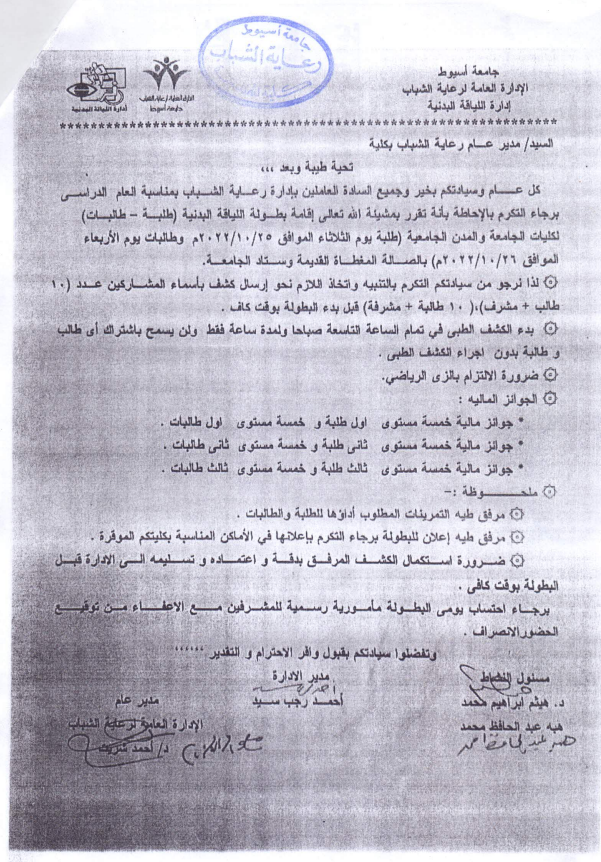 جامعة أسيوط
رعاية الشباب
جامعة أسيوط
الإدارة العامة لرعاية الشباب
إدارة اللياقة البدنية
الإدارة العامة لرعاية الشباب
جامعة أسيوط
إدارة اللياقة البدنية
السيد/ مدير عام رعاية الشباب بكلية
تحية طيبة وبعد ،،،
كل عام وسيادتكم بخير وجميع السادة العاملين بإدارة رعاية الشباب بمناسبة العام الدراسى
برجاء التكرم بالإحاطة بأنة تقرر بمشيئة الله تعالى إقامة بطولة اللياقة البدنية (طلبة – طالبات)
لكليات الجامعة والمدن الجامعية (طلبة يوم الثلاثاء الموافق ٢٠٢٢/١٠/٢٥م وطالبات يوم الأربعاء
الموافق ٢٠٢٢/١٠/٢٦م) بالصالة المغطاة القديمة وستاد الجامعة.
لذا نرجو من سيادتكم التكرم بالتنبيه واتخاذ اللازم نحو إرسال كشف بأسماء المشاركين عدد (١٠
طالب + مشرف)،( ١٠ طالبة + مشرفة) قبل بدء البطولة بوقت كاف .
بدء الكشف الطبى في تمام الساعة التاسعة صباحا ولمدة ساعة فقط ولن يسمح باشتراك أى طالب
و طالبة بدون اجراء الكشف الطبى .
ضرورة الالتزام بالزى الرياضي.
الجوائز الماليه :
* جوائز مالية خمسة مستوى اول طلبة و خمسة مستوى اول طالبات .
* جوائز مالية خمسة مستوى ثانى طلبة و خمسة مستوى ثانى طالبات .
* جوائز مالية خمسة مستوى ثالث طلبة و خمسة مستوى ثالث طالبات .
ملحوظة :-
مرفق طيه التمرينات المطلوب أداؤها للطلبة والطالبات .
مرفق طيه إعلان للبطولة برجاء التكرم بإعلانها في الأماكن المناسبة بكليتكم الموقرة .
ضرورة استكمال الكشف المرفق بدقة و اعتماده و تسليمه الى الادارة قبل
البطولة بوقت كافى .
برجاء احتساب يومى البطولة مأمورية رسمية للمشرفين مع الاعفاء من توقيع
الحضورالانصراف .
وتفضلوا سيادتكم بقبول وافر الاحترام و التقدير ،،،،،،
مسئول النشاط
مدير الادارة
مدير عام
د. هيثم ابراهيم محمد
أحمد رجب سيد
الإدارة العامة لرعاية الشباب
هبه عبد الحافظ محمد
د/ أحمد شريف